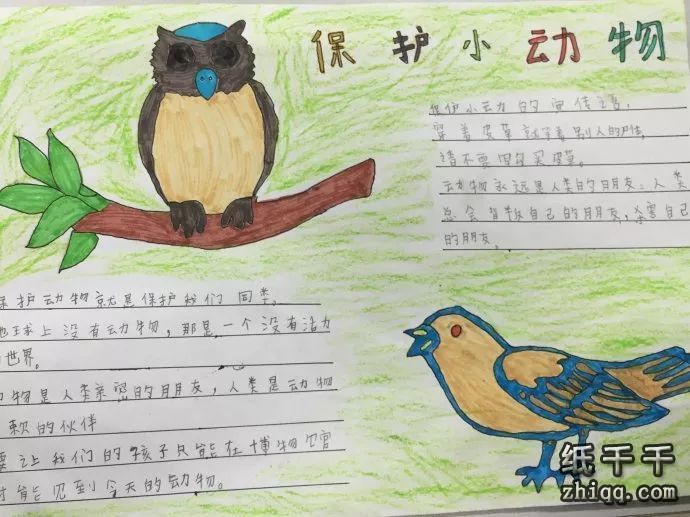 保护小动物
保护小动的宣传语，
穿着皮草就穿着别人的尸体，
请不要买皮草。
动物永远是人类的朋友，人类
总会背叛自己的朋友，杀害自己
的朋友。
保护动物就是保护我们同类。
地球上没有动物，那是一个没有活力
世界。
物是人类亲密的朋友，人类是动物
赖的伙伴
要让我们的孩子只能在博物馆
才能见到今天的动物。
纸千千
zhiqq.com